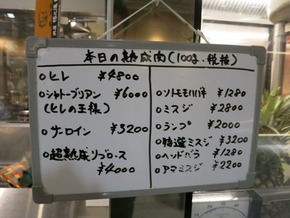 本日の熟成肉(100g・税抜)
○ヒレ ¥4800
○シャトーブリアン ¥6000
(ヒレの王様)
○サーロイン ¥3200
○超熟成リブロース
¥4000
○ソトモモ ¥1280
○ミスジ ¥2800
○ランプ ¥2000
○特選ミスジ ¥3200
○ヘッドバラ ¥1280
○アマミスジ ¥2200